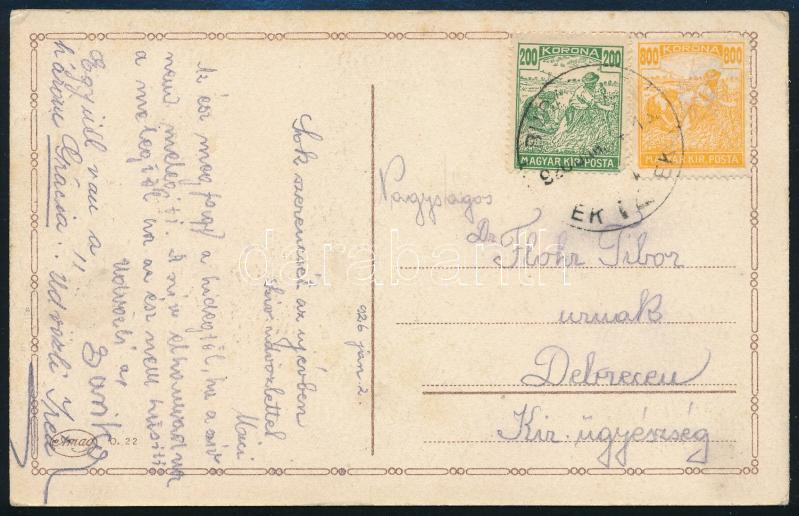 200 KORONA 200
MAGYAR KIR. POSTA
800 KORONA 800
MAGYAR KIR. POSTA
Nagyságos
Dr. Flohr Tibor
urnak
Debrecen
Kir. ügyészség
926 jan 2.
Sok szerencsét az ujévben
szives üdvözlettel
Mici
Az ész megfagy a hidegtől, ha a szív
nem melegíti. A szív elhamvad
a melegtől ha az ész nem hüsiti
Üdvözli
Együtt van a
három Grácia. Üdvözli
Amag
O. 22
darabanth